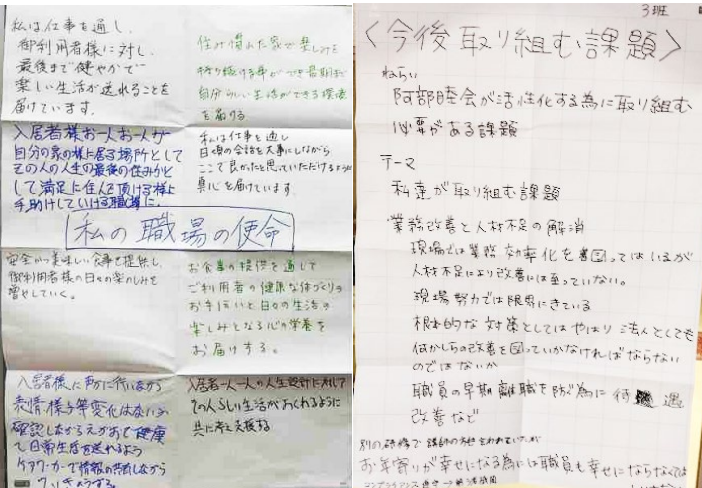 私は仕事を通し、
御利用者様に対し、
最後まで健やかで
楽しい生活が送れることを
届けています。
住み慣れた家で楽しみを
持ち続ける事ができ最期まで
自分らしい生活ができる環境
を届ける
入居者様お一人お一人が
自分の家の様に居る場所として
その人の人生の最後の住みかと
して満足に住んで頂ける様に
手助けしていける職場に。
私は仕事を通し
日頃の会話を大事にしながら
ここで良かったと思っていただけるように
真心を届けています。
私の職場の使命
安全かつ美味しい食事を提供し、
御利用者様の日々の楽しみを
増やしていく。
お食事の提供を通して
ご利用者の健康な体づくりの
お手伝いと日々の生活の
楽しみとなる心の栄養を
お届けする。
入居者様に
表情・様子等変化はないか
確認しながら
日常生活を送れるよう
ケアワーカーで情報の共有しながら
入居者一人一人の人生設計に対して
その人らしい生活がおくれるように
共に考え支援する
3班
〈今後取り組む課題〉
ねらい
阿部睦会が活性化する為に取り組む
必要がある課題
テーマ
私達が取り組む課題
業務改善と人材不足の解消
現場では業務効率化を図ってはいるが
人材不足により改善には至っていない。
現場努力では限界にきている
根本的な対策としてはやはり法人としても
何かしらの改善を図っていかなければならない
のではないか
職員の早期離職を防ぐ為に待遇
改善など
別の研修で講師の方も言われていたが
お年寄りが幸せになる為には職員も幸せにならなくては
コンプライアンス